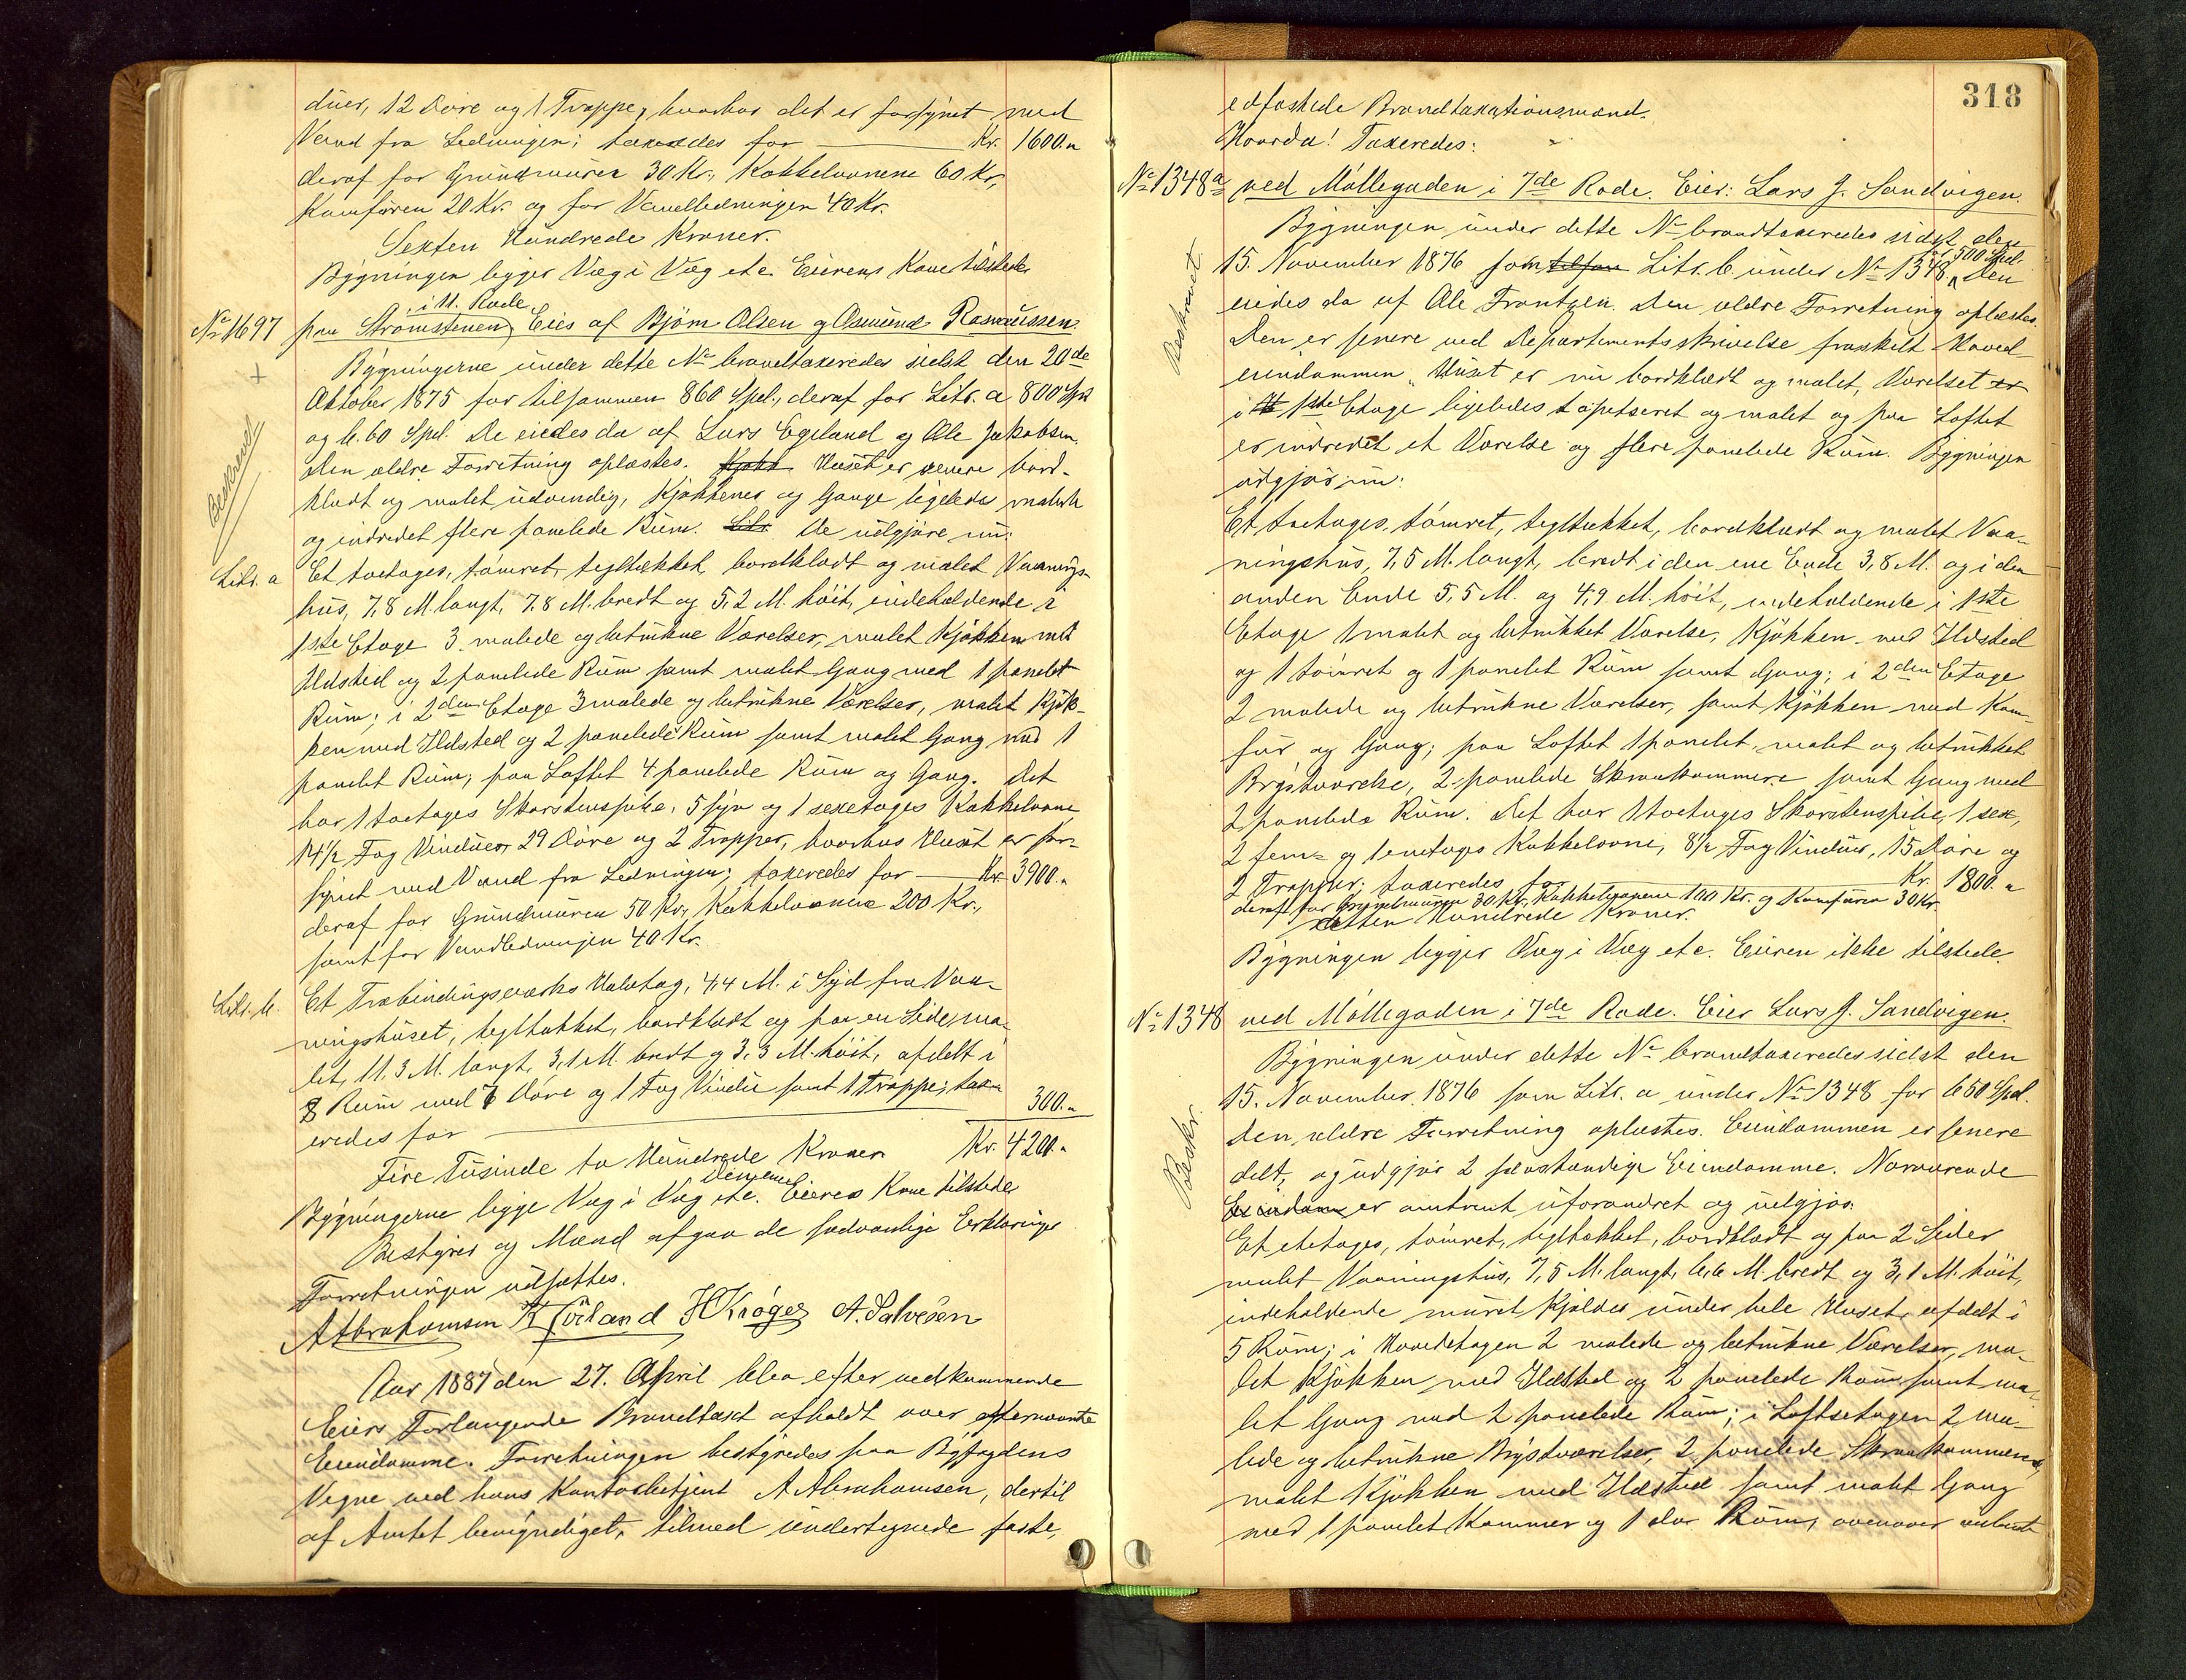 duer, 12 Døre og 1 Trappe, hvorhos det er forsynet med
Vand fra Ledningen; taxeredes for Kr. 1600."
deraf for Grundmuren 30 Kr., Kakkelovnene 60 Kr.,
Komfuren 20 Kr. og for Vandledningen 40 Kr.
Sexten Hundrede Kroner.
Bygningen ligger Væg i Væg etc. Eierens Kone tilstede
i 11. Rode
No 1697 paa Strømstenen, Eies af Bjørn Olsen og Osmund Rasmussen.
Bygningerne under dette No brandtaxeredes sidst den 20de
Oktober 1875 for tilsammen 860 Spd., deraf for Litr. a 800 Spd
og b. 60 Spd. De eiedes da af Lars Egeland og Ole Jakobsen.
Den ældre Forretning oplæstes. Huset er senere bord-
klædt og malet udvendig, Kjøkkener og Gange ligeledes malede
og indredet flere panelede Rum. Litr. De udgjøre nu:
Beskrevet
Litr. a Et toetages, tømret, tegltækket, bordklædt og malet Vaanings-
hus, 7,8 M. langt, 7,8 M. bredt og 5,2 M. høit, indeholdende i
1ste Etage 3 malede og betrukne Værelser, malet Kjøkken med
Ildsted og 2 panelede Rum samt malet Gang med 1 panelet
Rum; i 2den Etage 3 malede og betrukne Værelser, malet Kjøk-
ken med Ildsted og 2 panelede Rum samt malet Gang med 1
panelet Rum; paa Loftet 4 panelede Rum og Gang. Det
har 1 toetages Skorstenspibe, 5 syv og 1 sexetages Kakkelovne
14 1/2 Fag Vinduer, 29 Døre og 2 Trapper, hvorhos Huset er for-
synet med Vand fra Ledningen; taxeredes for Kr. 3900."
deraf for Grundmuren 50 Kr., Kakkelovnene 200 Kr.,
samt for Vandledningen 40 Kr.
Litr. b. Et Træbindingsværks Halvtag, 4,4 M. i Syd fra Vaa-
ningshuset, tegltækket, bordklædt og paa en Side ma-
let, 11,3 M. langt, 3,1 M. bredt og 3,3 M. høit, afdelt i
8 Rum med 7 Døre og 1 Fag Vindu samt 1 Trappe; taxe-
eredes for 300."
Fire Tusinde to Hundrede Kroner Kr. 4200."
Den ene
Bygningerne ligge Væg i Væg etc. Eieres Kone tilstede
Bestyrer og Mænd afgav de sædvanlige Erklæringer
Forretningen udsattes.
A Abrahamsen H Kröger A. Salvesen
Aar 1887 den 27. April blev efter vedkommende
Eiers Forlangende Brandtaxt afholdt over efternævnte
Eiendomme. Forretningen bestyredes paa Byfogdens
Vegne ved hans Kontorbetjent A Abrahamsen, dertil
af Amtet bemyndiget, tilmed undertegnede faste,
318
edfæstede Brandtaxationsmænd.
Hvorda! Taxeredes:
No 1348a ved Møllegaden i 7de Rode. Eier: Lars J. Sandvigen.
Bygningen under dette No brandtaxeredes sidst den
500 Spd.
15. November 1876 som Litr. b. under No 1348. Den
Beskrevet
eiedes da af Ole Frantzen. Den ældre Forretning oplæstes.
Den er senere ved Departementsskrivelse fraskilt Hoved-
eiendommen. Huset er nu bordklædt og malet, Værelset er
i 1ste Etage ligeledes tapetseret og malet og paa Loftet
er indredet et Værelse og flere panelede Rum. Bygningen
udgjør nu:
Et toetages, tømret, tegltækket, bordklædt og malet Vaa-
ningshus, 7,5 M. langt, bredt i den ene Ende 3,8 M. og i den
anden Ende 5,5 M. og 4,9 M. høit, indeholdende i 1ste
Etage 1 malet og betrukket Værelse, Kjøkken med Ildsted
og 1 tømret og 1 panelet Rum samt Gang; i 2den Etage
2 malede og betrukne Værelser, samt Kjøkken med Kom-
fur og Gang; paa Loftet 1 panelet, malet og betrukket
Brystværelse, 2 panelede Skraakammere samt Gang med
2 panelede Rum. Det har 1 toetages Skorstenspibe, 1 sex,
2 fem- og 1 enetages Kakkelovne, 8 1/2 Fag Vinduer, 15 Døre og
2 Trapper; taxeredes for Kr. 1800."
deraf for Grundmuren 30 Kr., Kakkelovnene 100 Kr. og Komfuren 30 Kr.
Atten Hundrede Kroner.
Bygningen ligger Væg i Væg etc. Eieren ikke tilstede.
No 1348 ved Møllegaden i 7de Rode. Eier Lars J. Sandvigen.
Bygningen under dette No brandtaxeredes sidst den
15. November 1876 som Litr. a under No 1348 for 650 Spd.
Den ældre Forretning oplæstes. Eiendommen er senere
Beskr.
delt, og udgjør 2 selvstændige Eiendomme. Nærværende
Eiendom er omtrent uforandret og udgjør:
Et etetages, tømret, tegltækket, bordklædt og paa 2 Sider
malet Vaaningshus, 7,5 M. langt, 6,6 M. bredt og 3,1 M. høit,
indeholdende muret Kjælder under hele Huset, afdelt i
5 Rum; i Hovedetagen 2 malede og betrukne Værelser, ma-
let Kjøkken med Ildsted og 2 panelede Rum samt ma-
let Gang med 2 panelede Rum; i Loftsetagen 2 ma-
lede og betrukne Brystværelser, 2 panelede Skraakammere,
malet Kjøkken med Ildsted samt malet Gang
med 1 panelet Kammer og 1 do. Rum, ovenover